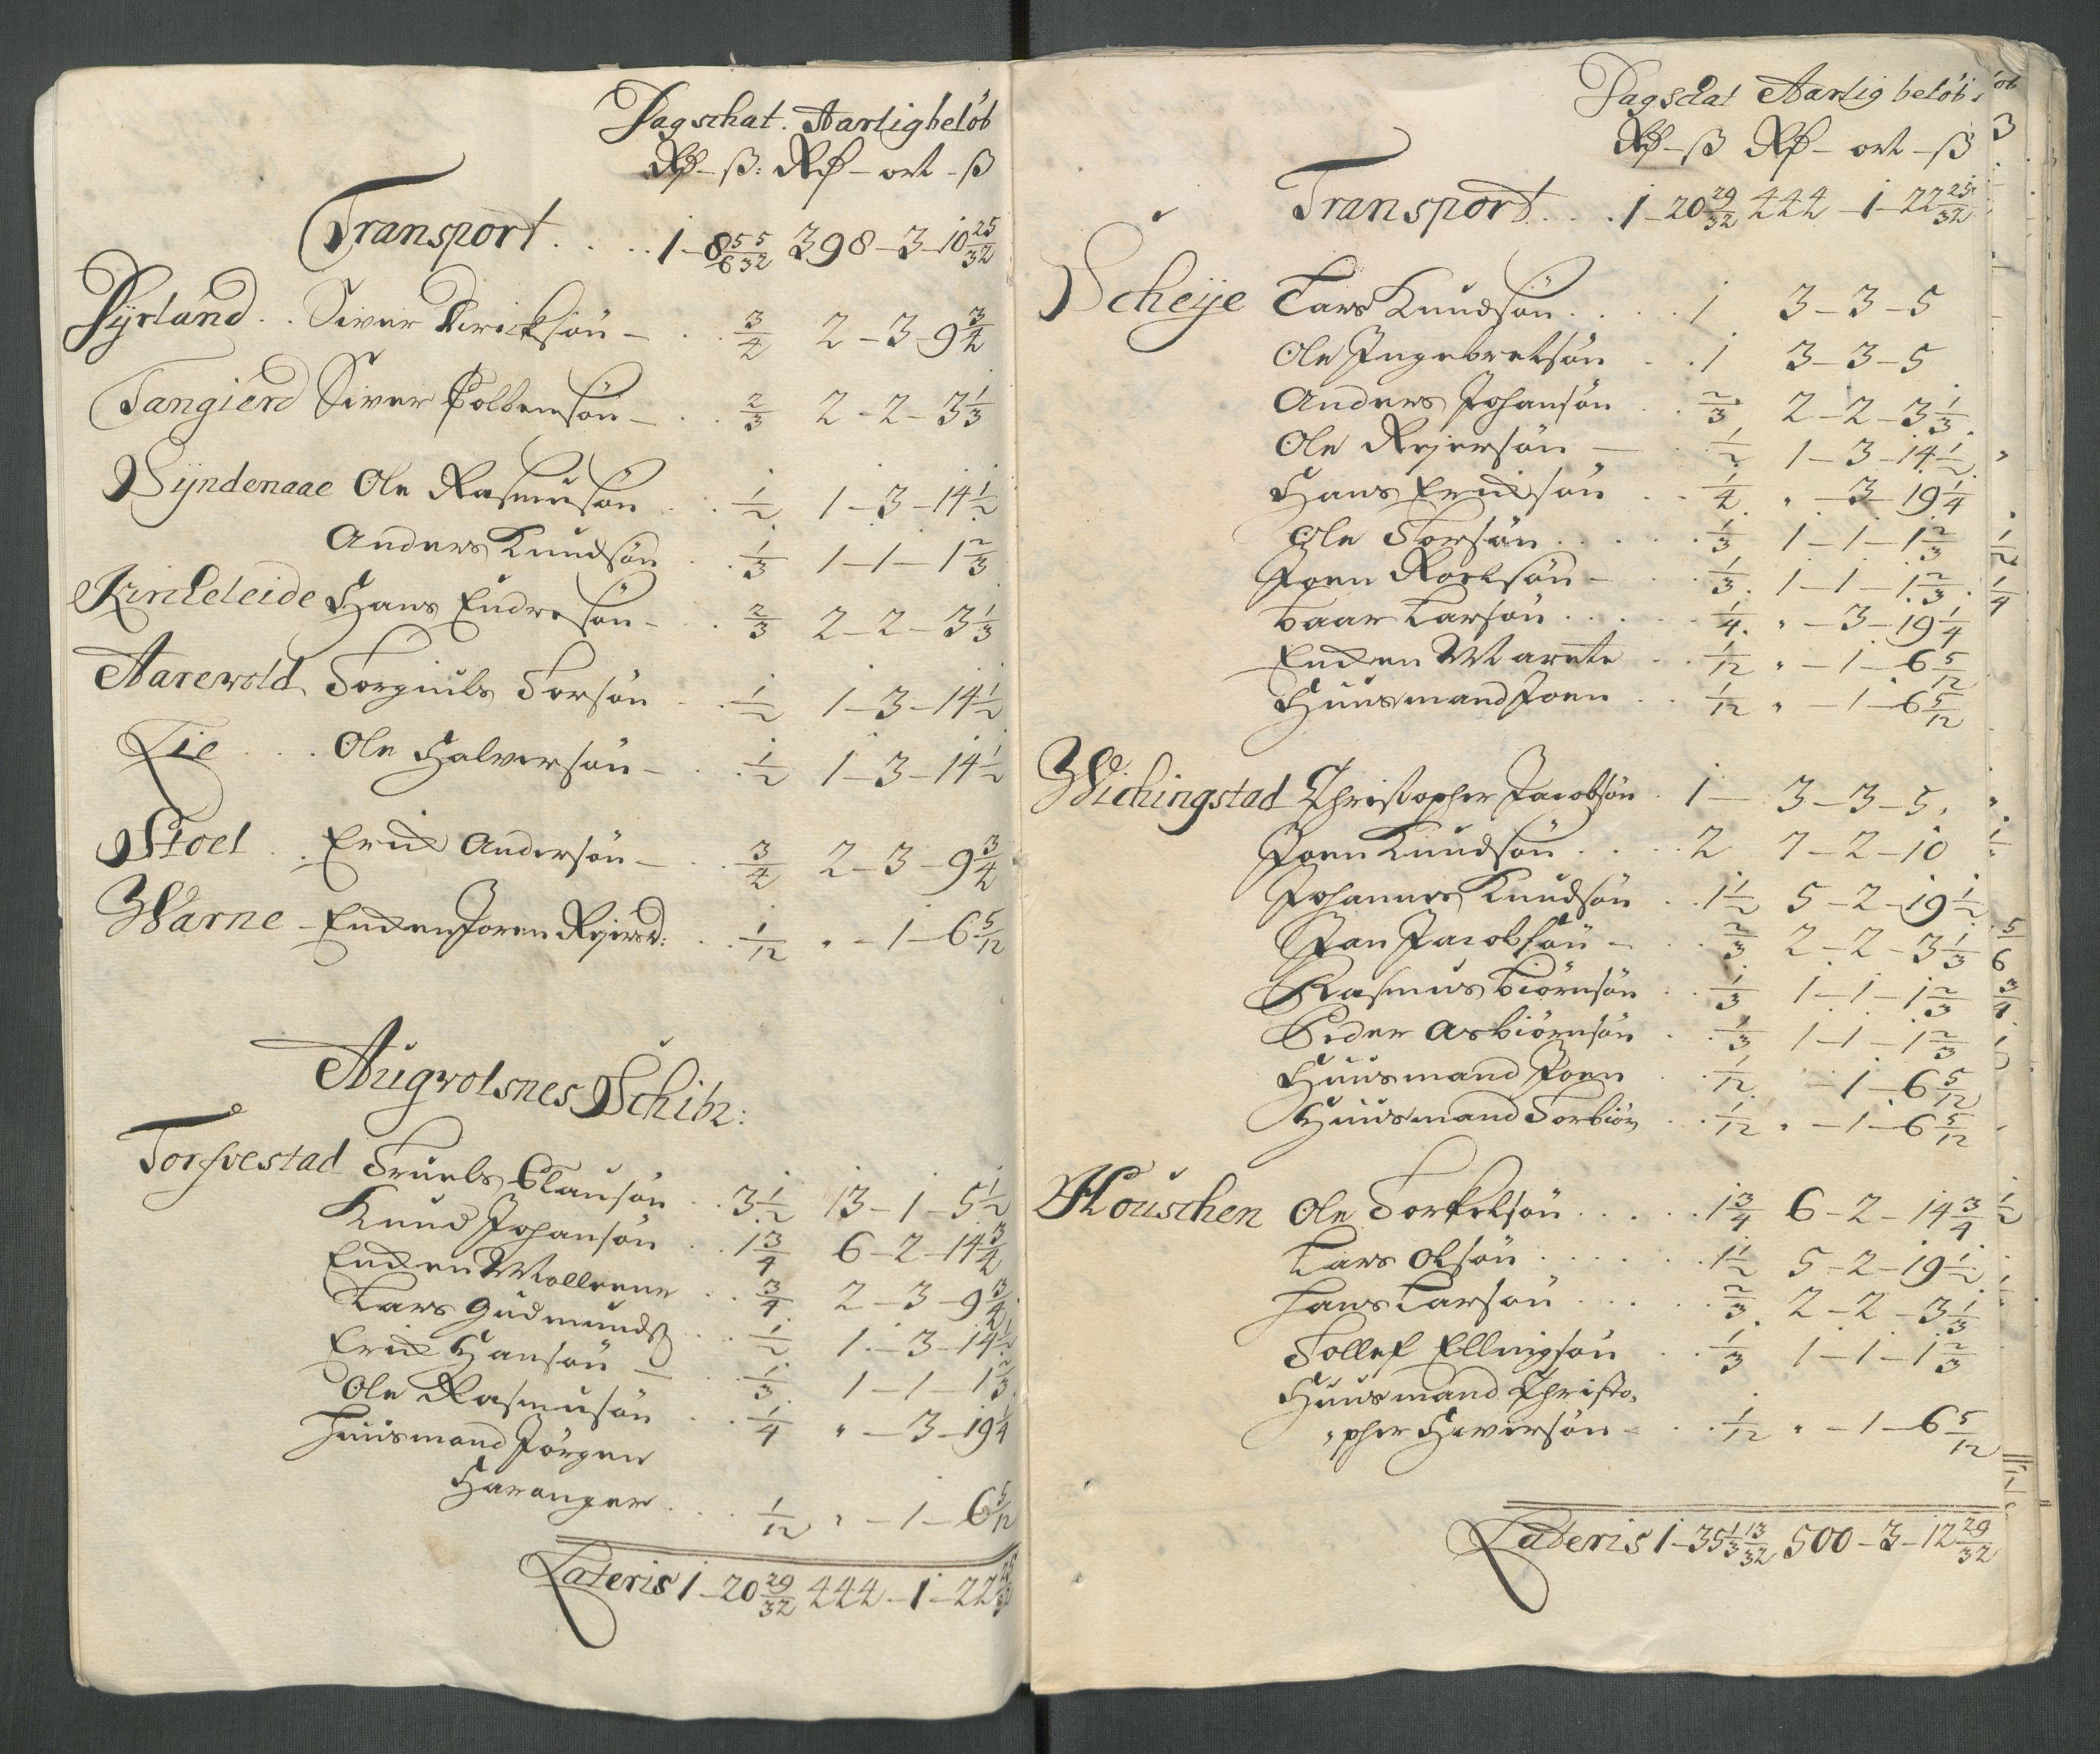 Dagschat. Aarlig beløb
Rd – ß: Rd – ort – ß
Transport . . . . 1 – 8 5/6 5/32 398 – 3 – 10 25/32
Syrland . . Siver Dirichsøn – . . 3/4 2 – 3 – 9 3/4
Tangierd Siver Colbensøn – . . 2/3 2 – 2 – 3 1/3
Syndenaae Ole Rasmusøn . . 1/2 1 – 3 – 14 1/2
Anders Knudsøn . . 1/3 1 – 1 – 1 2/3
Kircheleide Hans Endresøn – . . 2/3 2 – 2 – 3 1/3
Aarewold Torgiuls Torsøn . . 1/2 1 – 3 – 14 1/2
Lie . . . Ole Halversøn – . . 1/2 1 – 3 – 14 1/2
Stoel . . Erich Andersøn – . . 3/4 2 – 3 – 9 3/4
Warne – Enchen Joren Reiersd: . . 1/12 " – 1 – 6 5/12
Augwolsnes Schibr:
Torfvestad Truels Clausøn . . 3 1/2 13 – 1 – 5 1/2
Knud Johansøn . . 1 3/4 6 – 2 – 14 3/4
Enchen Mallrene . . 3/4 2 – 3 – 9 3/4
Lars Gudmundß . . 1/2 1 – 3 – 14 1/2
Erich Hansøn – . . 1/3 1 – 1 – 1 2/3
Ole Rasmusøn . . 1/4 " – 3 – 19 1/4
Huusmand Jørgen
Haranger . . . 1/12 " – 1 – 6 5/12
Lateris 1 – 20 29/32 444 – 1 – 22 25/32
Dagschat Aarlig beløb
Rd – ß Rd – ort – ß
Transport . . . 1 – 20 29/32 444 – 1 – 22 25/32
Scheije Lars Knudsøn . . . . 1 3 – 3 – 5
Ole Ingebretsøn . . 1 3 – 3 – 5
Anders Johansøn . . 2/3 2 – 2 – 3 1/3
Ole Reiersøn – . . 1/2 1 – 3 – 14 1/2
Hans Erichsøn . . 1/4 " – 3 – 19 1/4
Ole Torsøn . . . . 1/3 1 – 1 – 1 2/3
Joen Roelsøn – . . 1/3 1 – 1 – 1 2/3
Baar Larsøn . . . . 1/4 " – 3 – 19 1/4
Enchen Marete . . 1/12 " – 1 – 6 5/12
Huusmand Joen . . 1/12 " – 1 – 6 5/12
Wichingstad Christopher Jacobsøn . 1 – 3 – 3 – 5
Joen Knudsøn . . . . 2 7 – 2 – 10
Johannes Knudsøn . . 1 1/2 5 – 2 – 19 1/2
Jan Jacobsøn – . . 2/3 2 – 2 – 3 1/3
Rasmus Biørnsøn . . 1/3 1 – 1 – 1 2/3
Peder Asbiørnsøn . . 1/3 1 – 1 – 1 2/3
Huusmand Joen . . 1/12 – 1 – 6 5/12
Huusmand Torbiør . . 1/12 " – 1 – 6 5/12
Houschen Ole Torkelsøn . . . . 1 3/4 6 – 2 – 14 3/4
Lars Olsøn . . . . . 1 1/2 5 – 2 – 19 1/2
Hans Larsøn . . . . 2/3 2 – 2 – 3 1/3
Tollef Ellingsøn . . 1/3 1 – 1 – 1 2/3
Huusmand Christo-
"pher Siversøn – . . 1/12 " – 1 – 6 5/12
Lateris 1 – 35 1/3 13/32 500 – 3 – 12 29/32